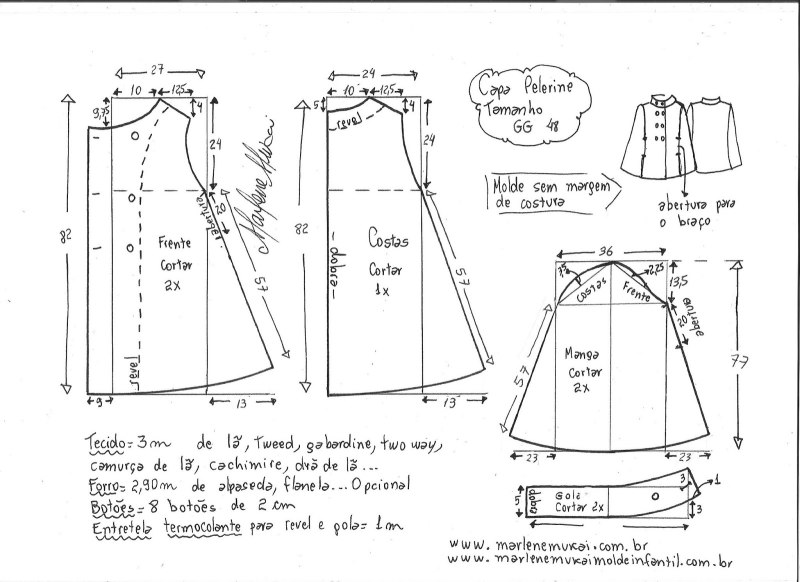 27
10
12,5
9,75
4
24
82
20
abertura
57
Frente
Cortar
2x
revel
9
13
Marlene Mukai
24
10
12,5
5
4
revel
24
82
dobra
Costas
Cortar
1x
57
13
Capa Pelerine
Tamanho
GG 48
Molde sem margem
de costura
abertura para
o braço
36
Costas
Frente
13,5
20
abertura
57
77
Manga
Cortar
2x
23
23
5
dobra
Gola
Cortar 2x
3
1
3
Tecido= 3m de lã, tweed, gabardine, two way,
camurça de lã, cachimire, drã de lã...
Forro= 2,90m de alpaseda, flanela... Opcional
Botões= 8 botões de 2 cm
Entretela termocolante para revel e gola= 1m
www.marlenemukai.com.br
www.marlenemukaimoldeinfantil.com.br